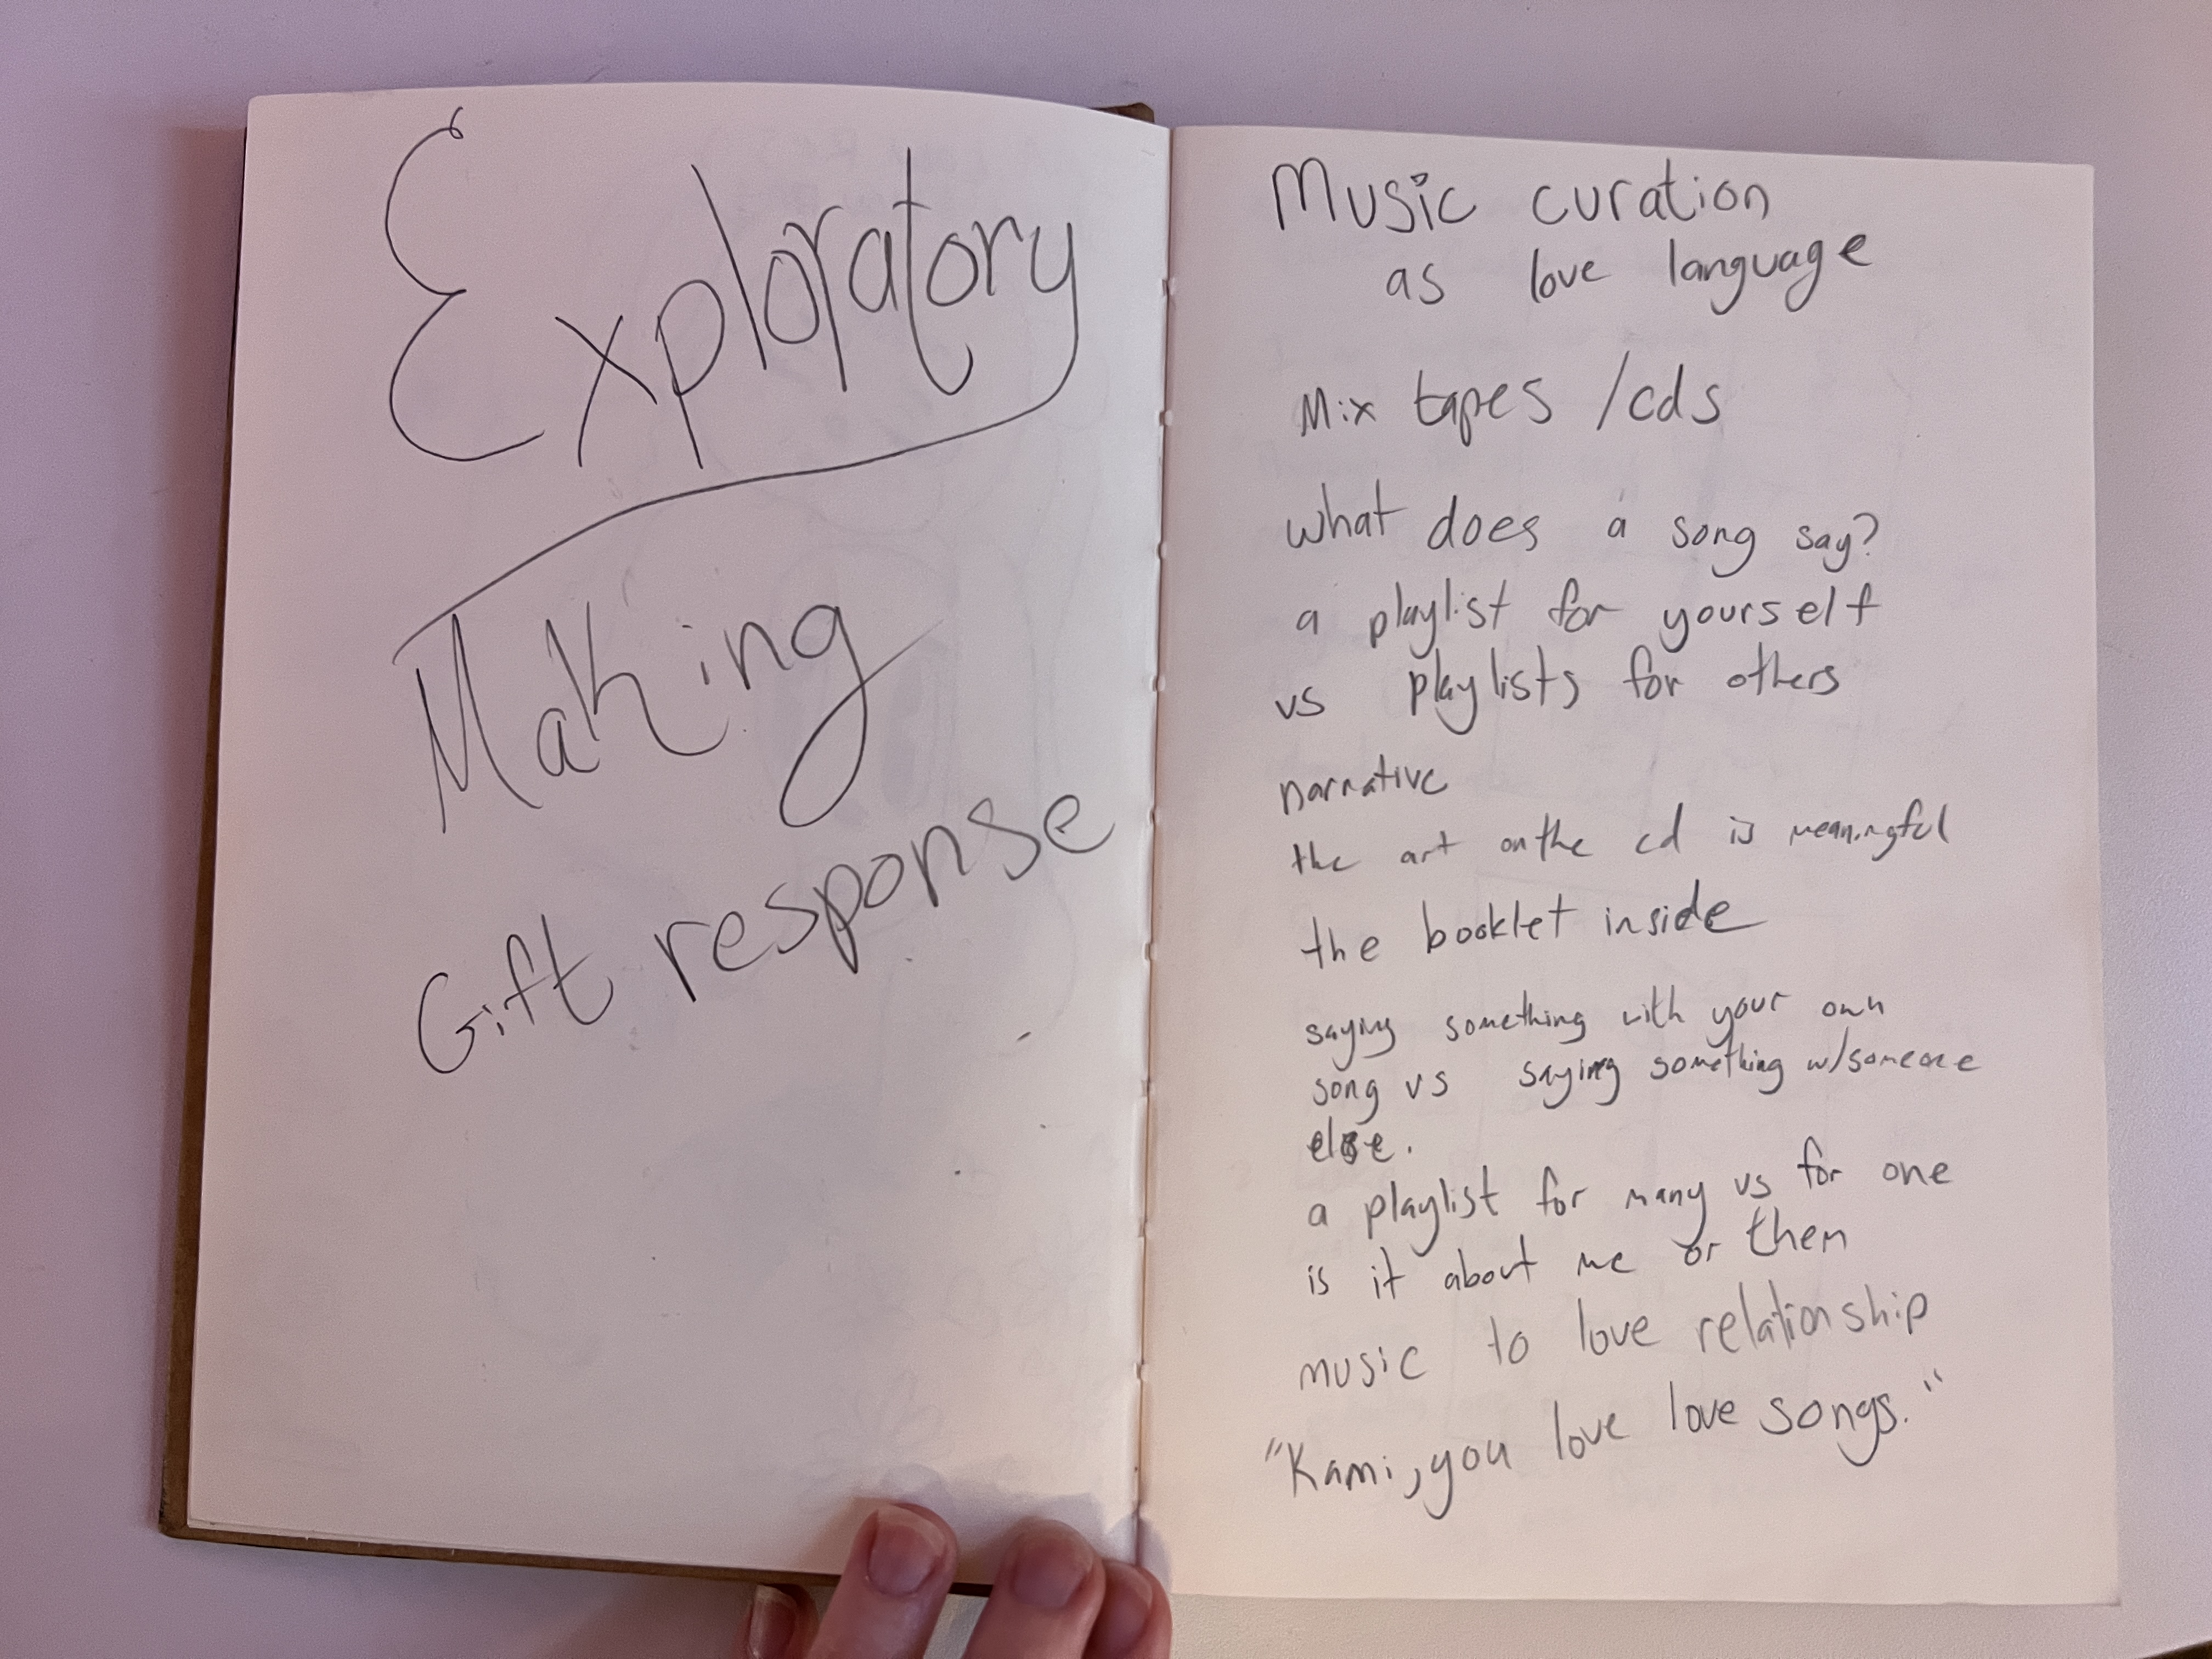 Exploratory
Making
Gift response
Music curation
as love language
Mix tapes /cds
what does a song say?
a playlist for yourself
vs playlists for others
narrative
the art on the cd is meaningful
the booklet inside
saying something with your own
song vs saying something w/someone
else.
a playlist for many vs for one
is it about me or them
music to love relationship
"Kami, you love love songs."